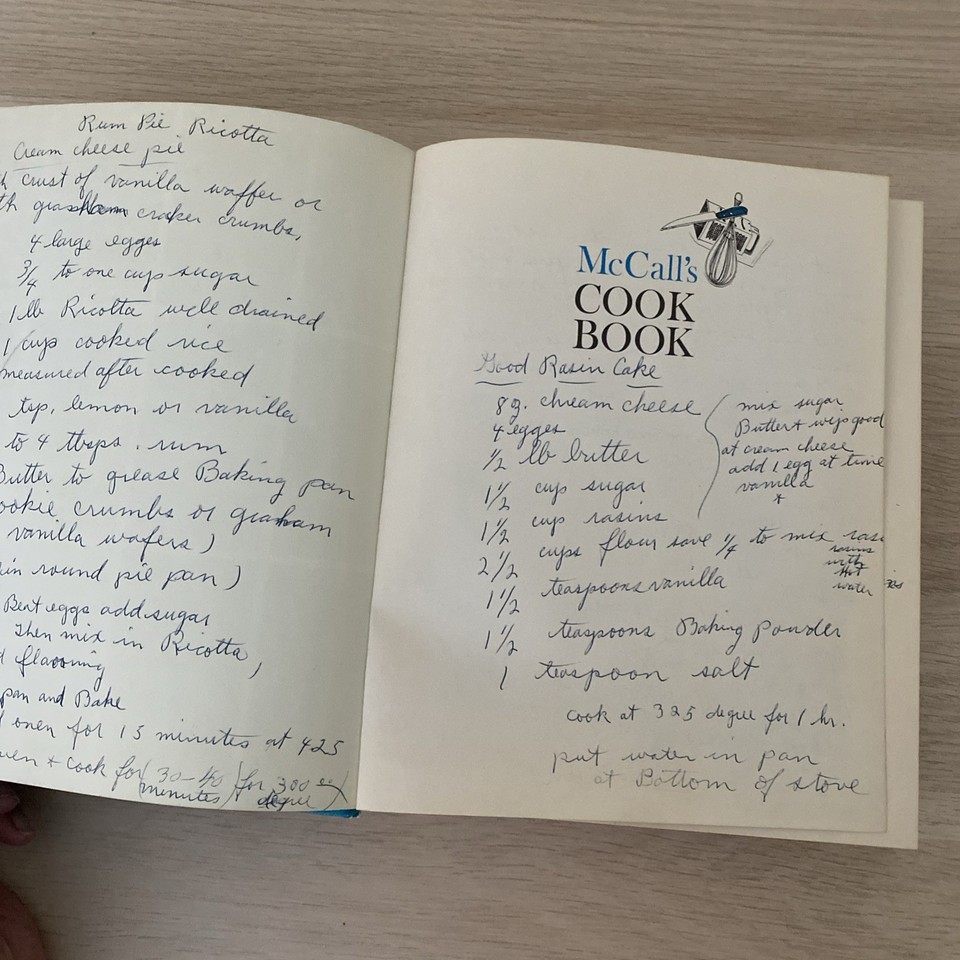 Rum Pie Ricotta
Cream cheese pie
crust of vanilla waffer or
graham craker crumbs,
4 large egges
3/4 to one cup sugar
1 lb Ricotta well drained
1 cup cooked rice
measured after cooked
tsp. lemon or vanilla
to 4 tbsps. rum
Butter to grease Baking pan
ookie crumbs or graham
vanilla wafers)
in round pie pan)
Beat eggs add sugar
then mix in Ricotta,
flavoring
pan and Bake
oven for 15 minutes at 425
+ cook for (30-40 minutes) for 300 degree
McCall's
COOK
BOOK
Good Rasin Cake
8 g. chream cheese
4 egges
1/2 lb butter
1 1/2 cup sugar
1 1/2 cup rasins
2 1/2 cups flour save 1/4 to mix
1 1/2 teaspoons vanilla
1 1/2 teaspoons Baking powder
1 teaspoon salt
mix sugar
Butter + wip good
at cream cheese
add 1 egg at time
vanilla
*
rasins
with
Hot
water
cook at 325 degree for 1 hr.
put water in pan
at Bottom of stove